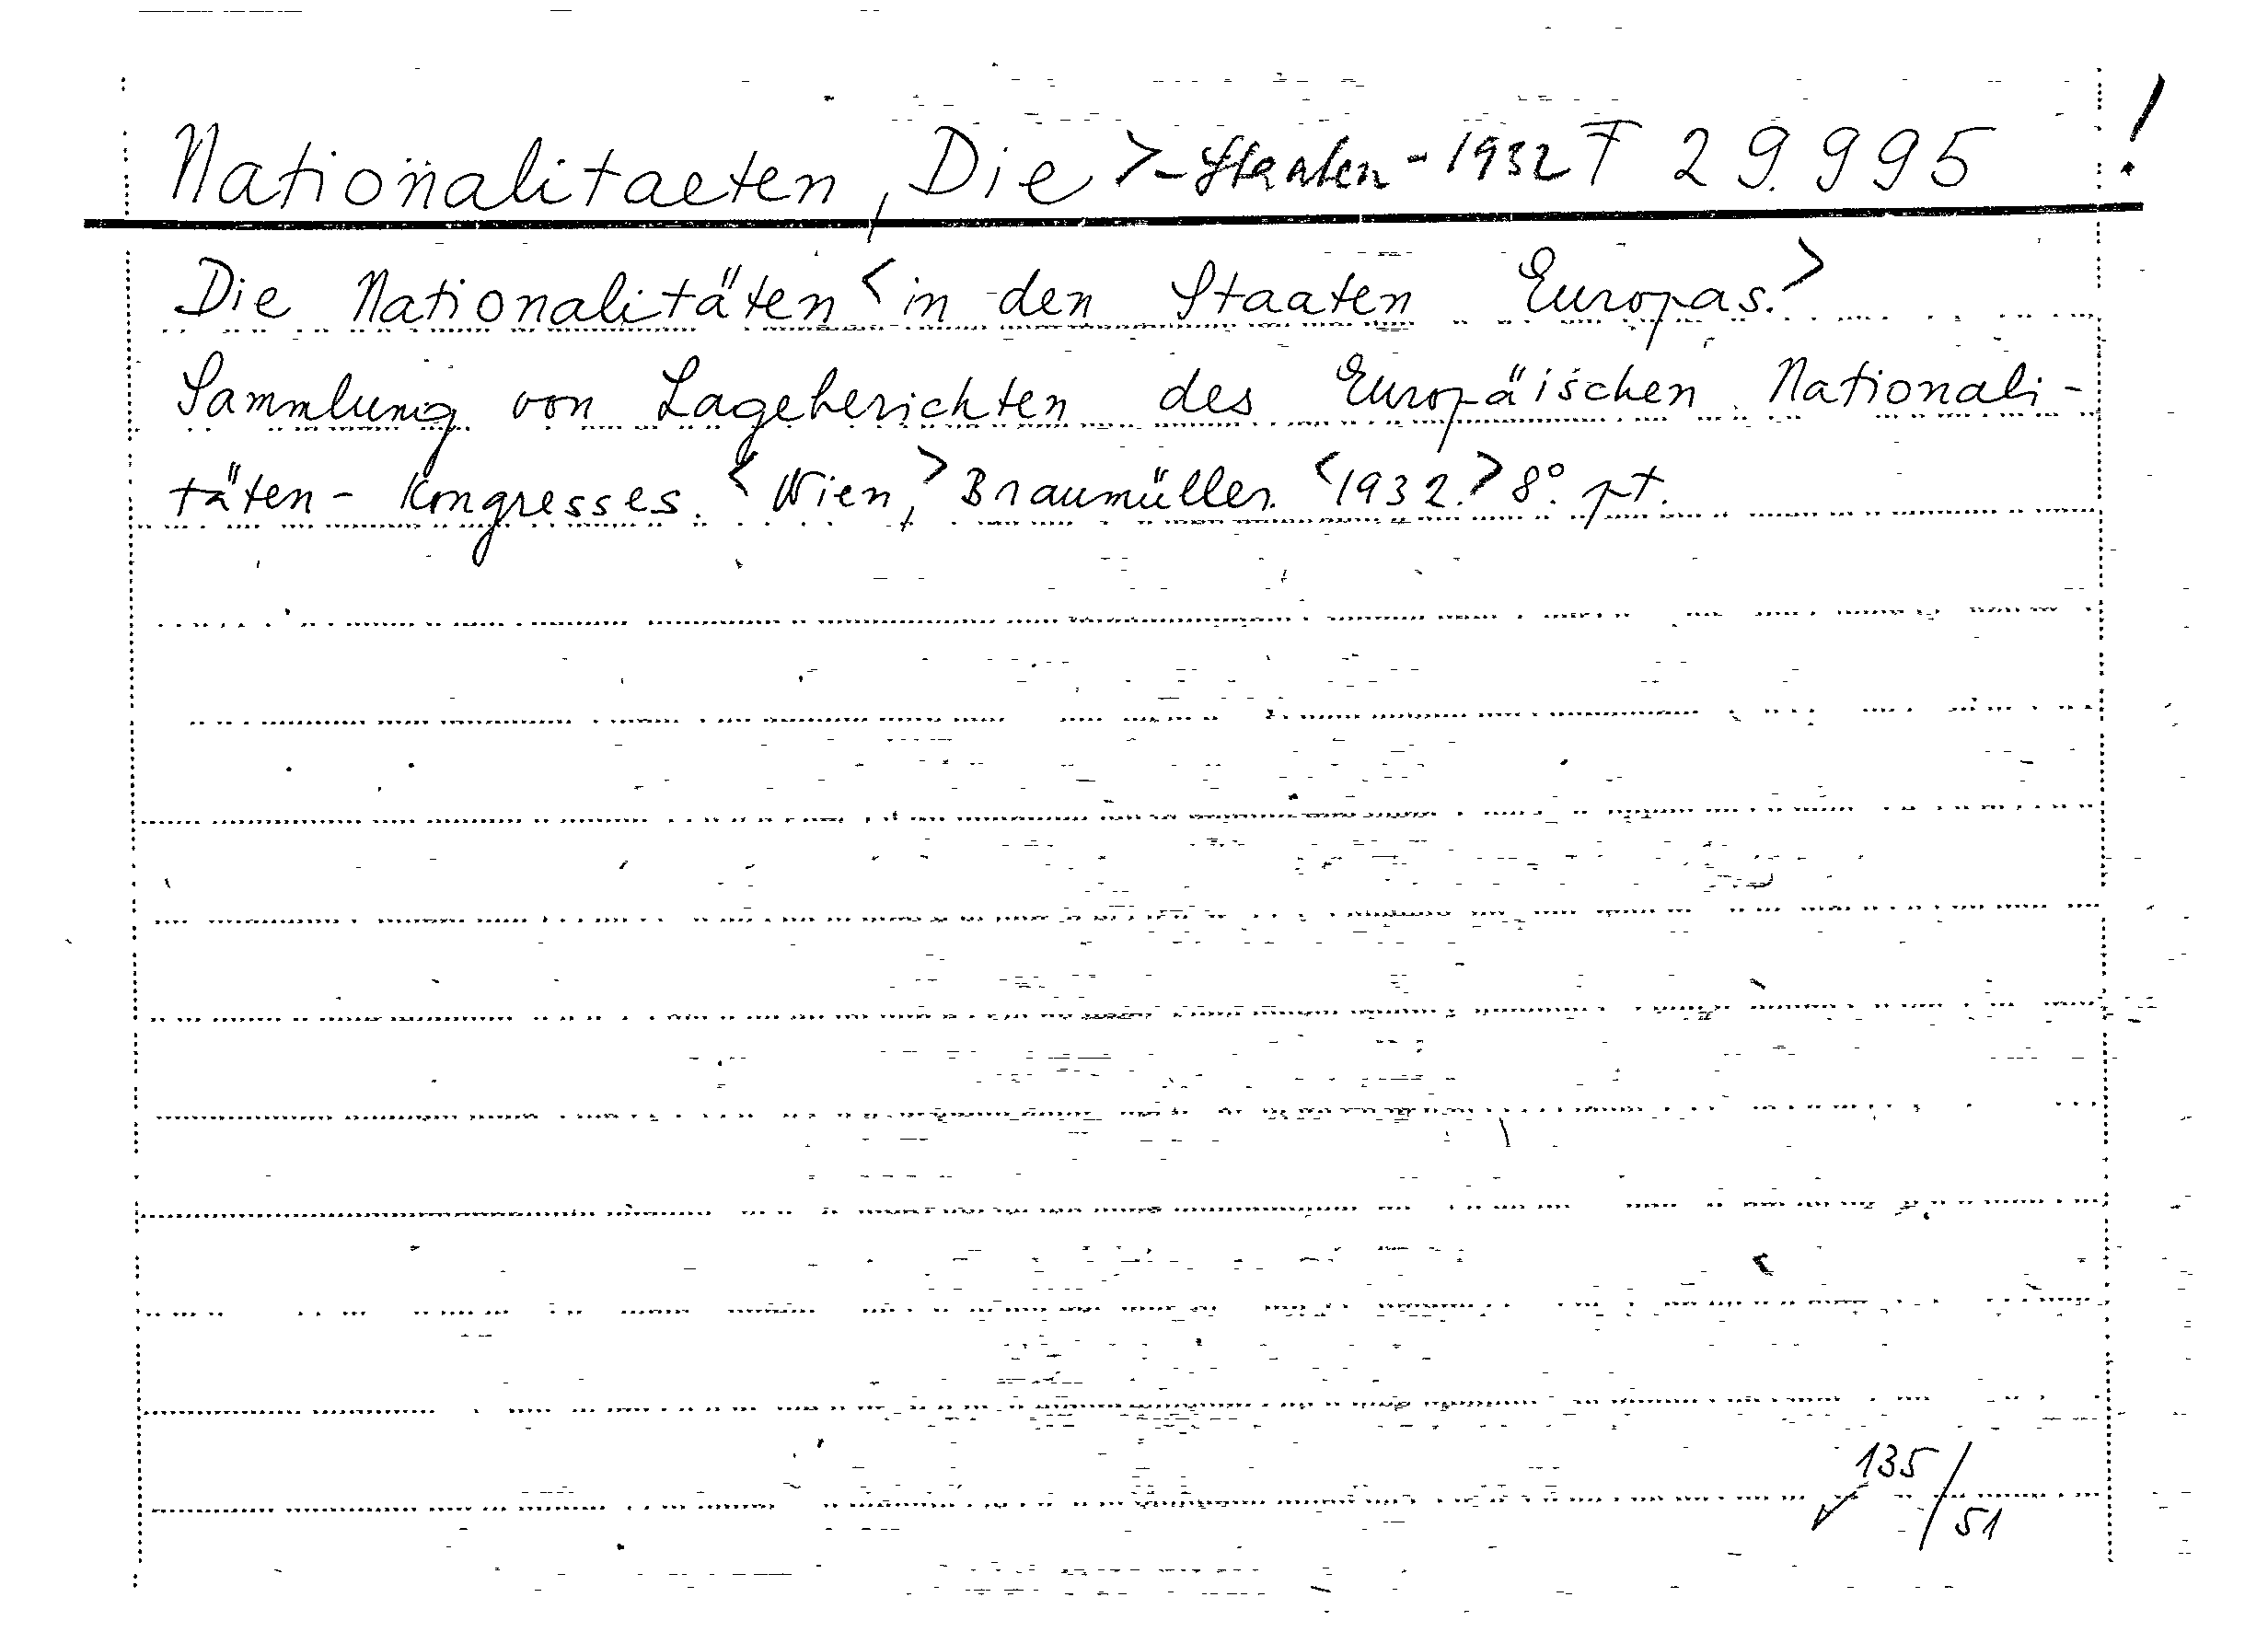 Nationalitaeten, Die >-Staaten-1932 T 29.995 !
Die Nationalitäten <in den Staaten Europas.>
Sammlung von Lageberichten des Europäischen Nationali-
täten-Kongresses. <Wien,> Braumüller. <1932.> 8°. pt.
135/51